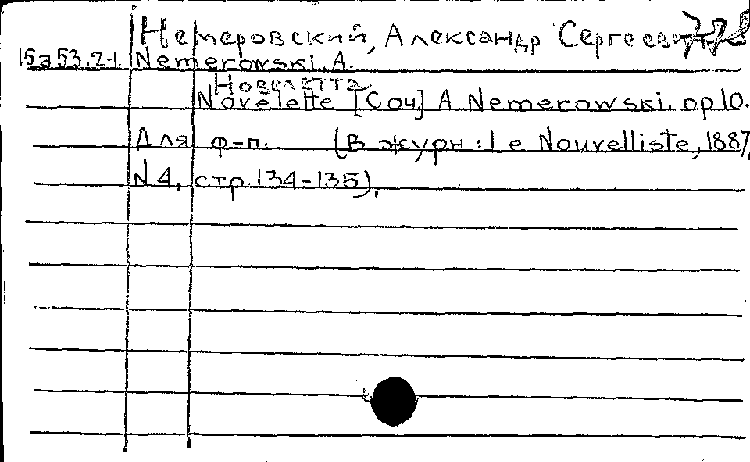 Немеровский, Александр Сергеевич
15а53.2-1 Nemerowski, A.
Новелетта
Novelette [Соч.] A. Nemerowski. op.10.
Для ф-п. (В журн: Le Nouvelliste, 1887,
N4, стр. 134-135).